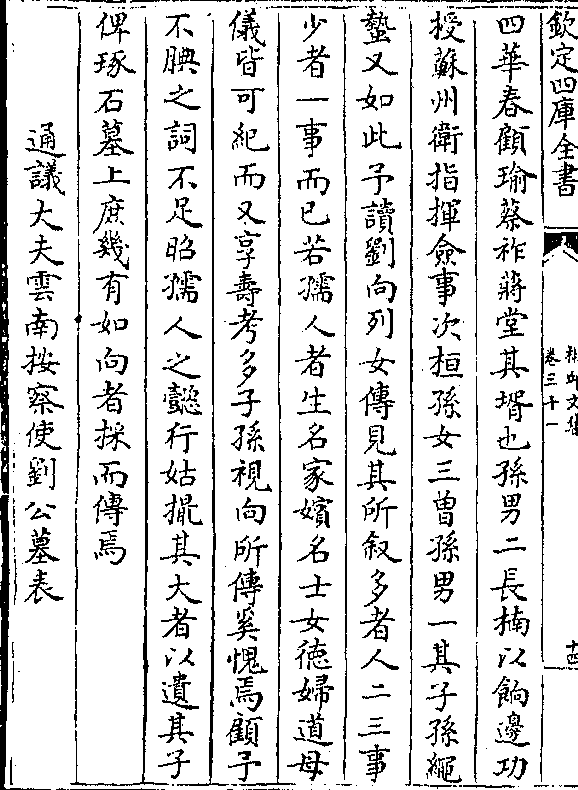 欽定四庫全書
卷三十一
十四
四華春顧瑜蔡祚蔣堂其壻也孫男二長楠以餉邊功
授蘇州衛指揮僉事次桓孫女三曾孫男一其子孫繩
蟄又如此予讀劉向列女傳見其所叙多者人二三事
少者一事而已若孺人者生名家嬪名士女德婦道母
儀皆可紀而又享壽考多子孫視向所傳奚愧焉顧予
不腆之詞不足昭孺人之懿行姑撮其大者以遺其子
俾琢石墓上庶幾有如向者採而傳焉
通議大夫雲南按察使劉公墓表